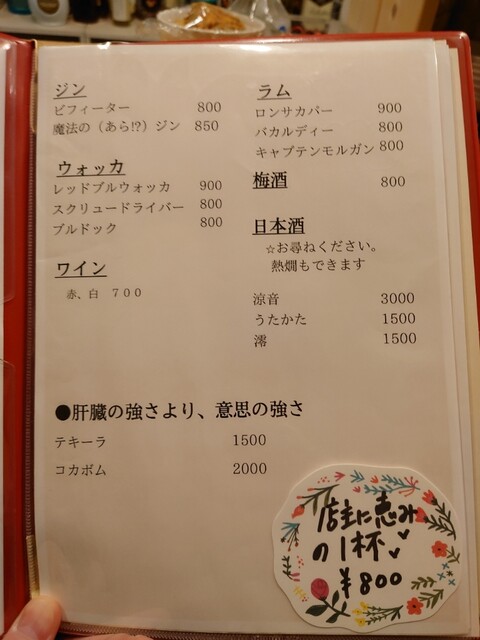 ジン
ビフィーター 800
魔法の（あら!?）ジン 850
ウォッカ
レッドブルウォッカ 900
スクリュードライバー 800
ブルドック 800
ワイン
赤、白 700
ラム
ロンサカバー 900
バカルディー 800
キャプテンモルガン 800
梅酒 800
日本酒
☆お尋ねください。
熱燗もできます
涼音 3000
うたかた 1500
澪 1500
●肝臓の強さより、意思の強さ
テキーラ 1500
コカボム 2000
店主に恵み
の1杯
¥800